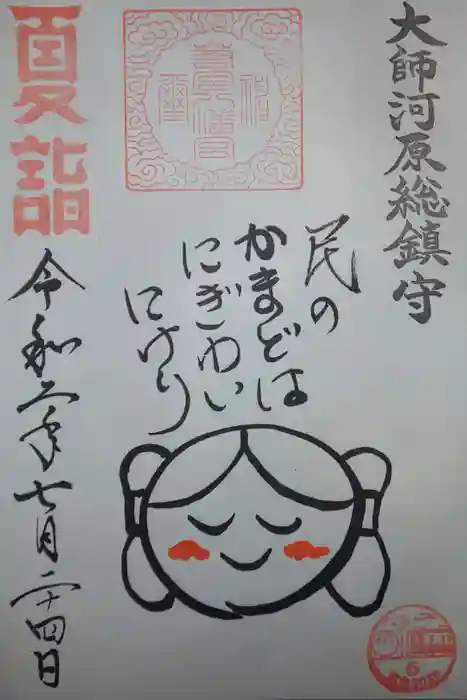 大師河原総鎮守
民の
かまどは
にぎわい
にけり
夏詣
令和二年七月二十四日